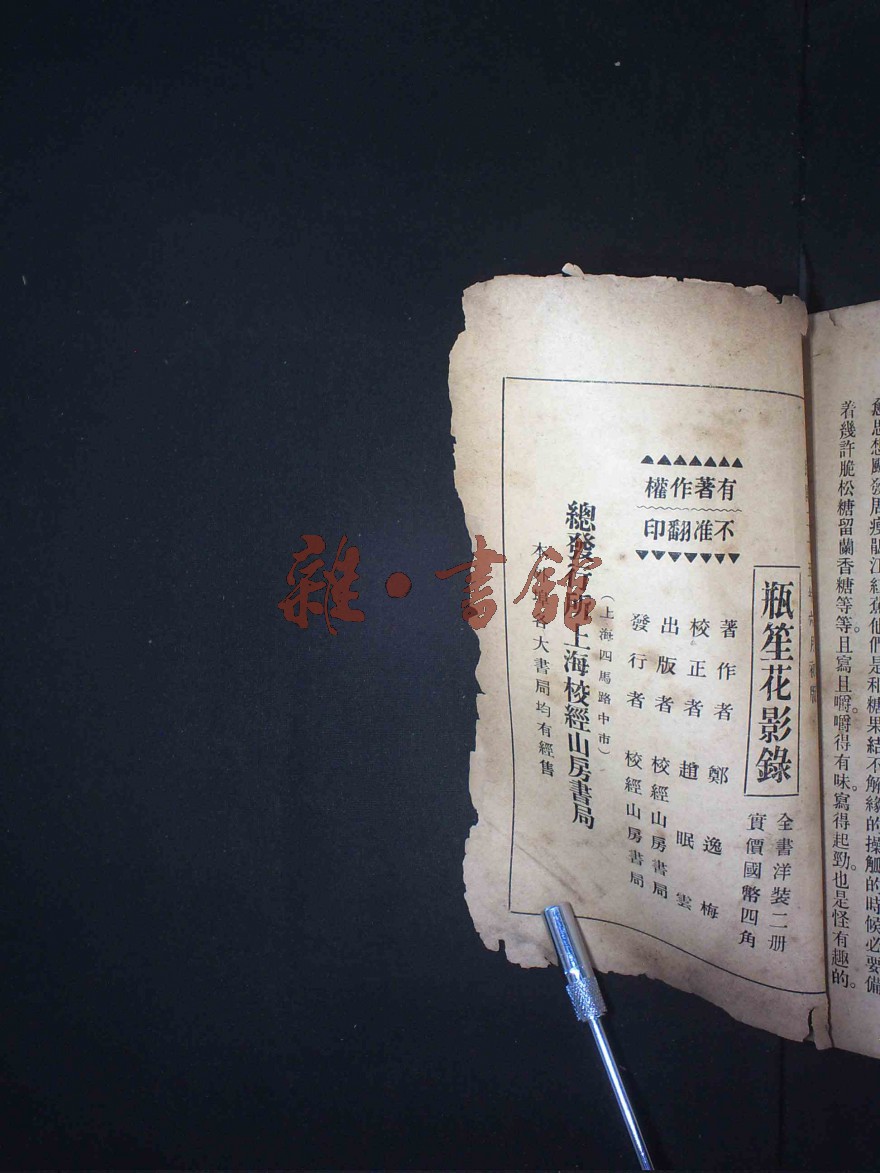 愈思想飈發居瘦鵑江紅蕉他們是和糖果結不解緣的操觚的時候必要備
着幾許脆松糖留蘭香糖等等且寫且嚼嚼得有味。寫得起勁。也是怪有趣的。
瓶笙花影錄
全書洋裝二册
實價國幣四角
有著作權
不准翻印
著作者 鄭逸梅
校正者 趙眠雲
出版者 校經山房書局
發行者 校經山房書局
(上海四馬路中市)
總發行所上海校經山房書局
各大書局均有經售
雜·書館